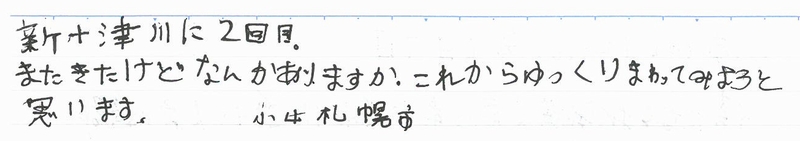 新十津川に2回目。
またきたけどなんかありますか。これからゆっくりまわってみようと
思います。 札幌市